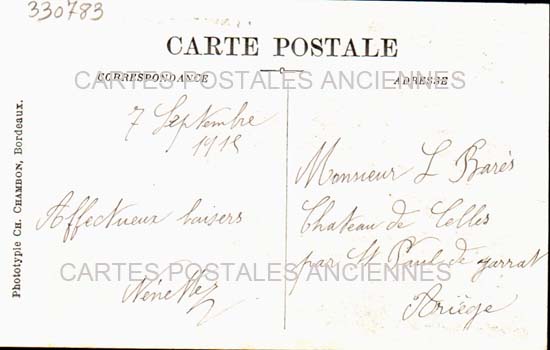 330783
CARTE POSTALE
CARTES POSTALES ANCIENNES
CORRESPONDANCE
ADRESSE
7 Septembre
Affectueux baisers
Monsieur L Barès
Chateau de Celles
par St Paul de Jarrat
Ariège
CARTES POSTALES ANCIENNES
Phototypie CH. CHAMBON, Bordeaux.